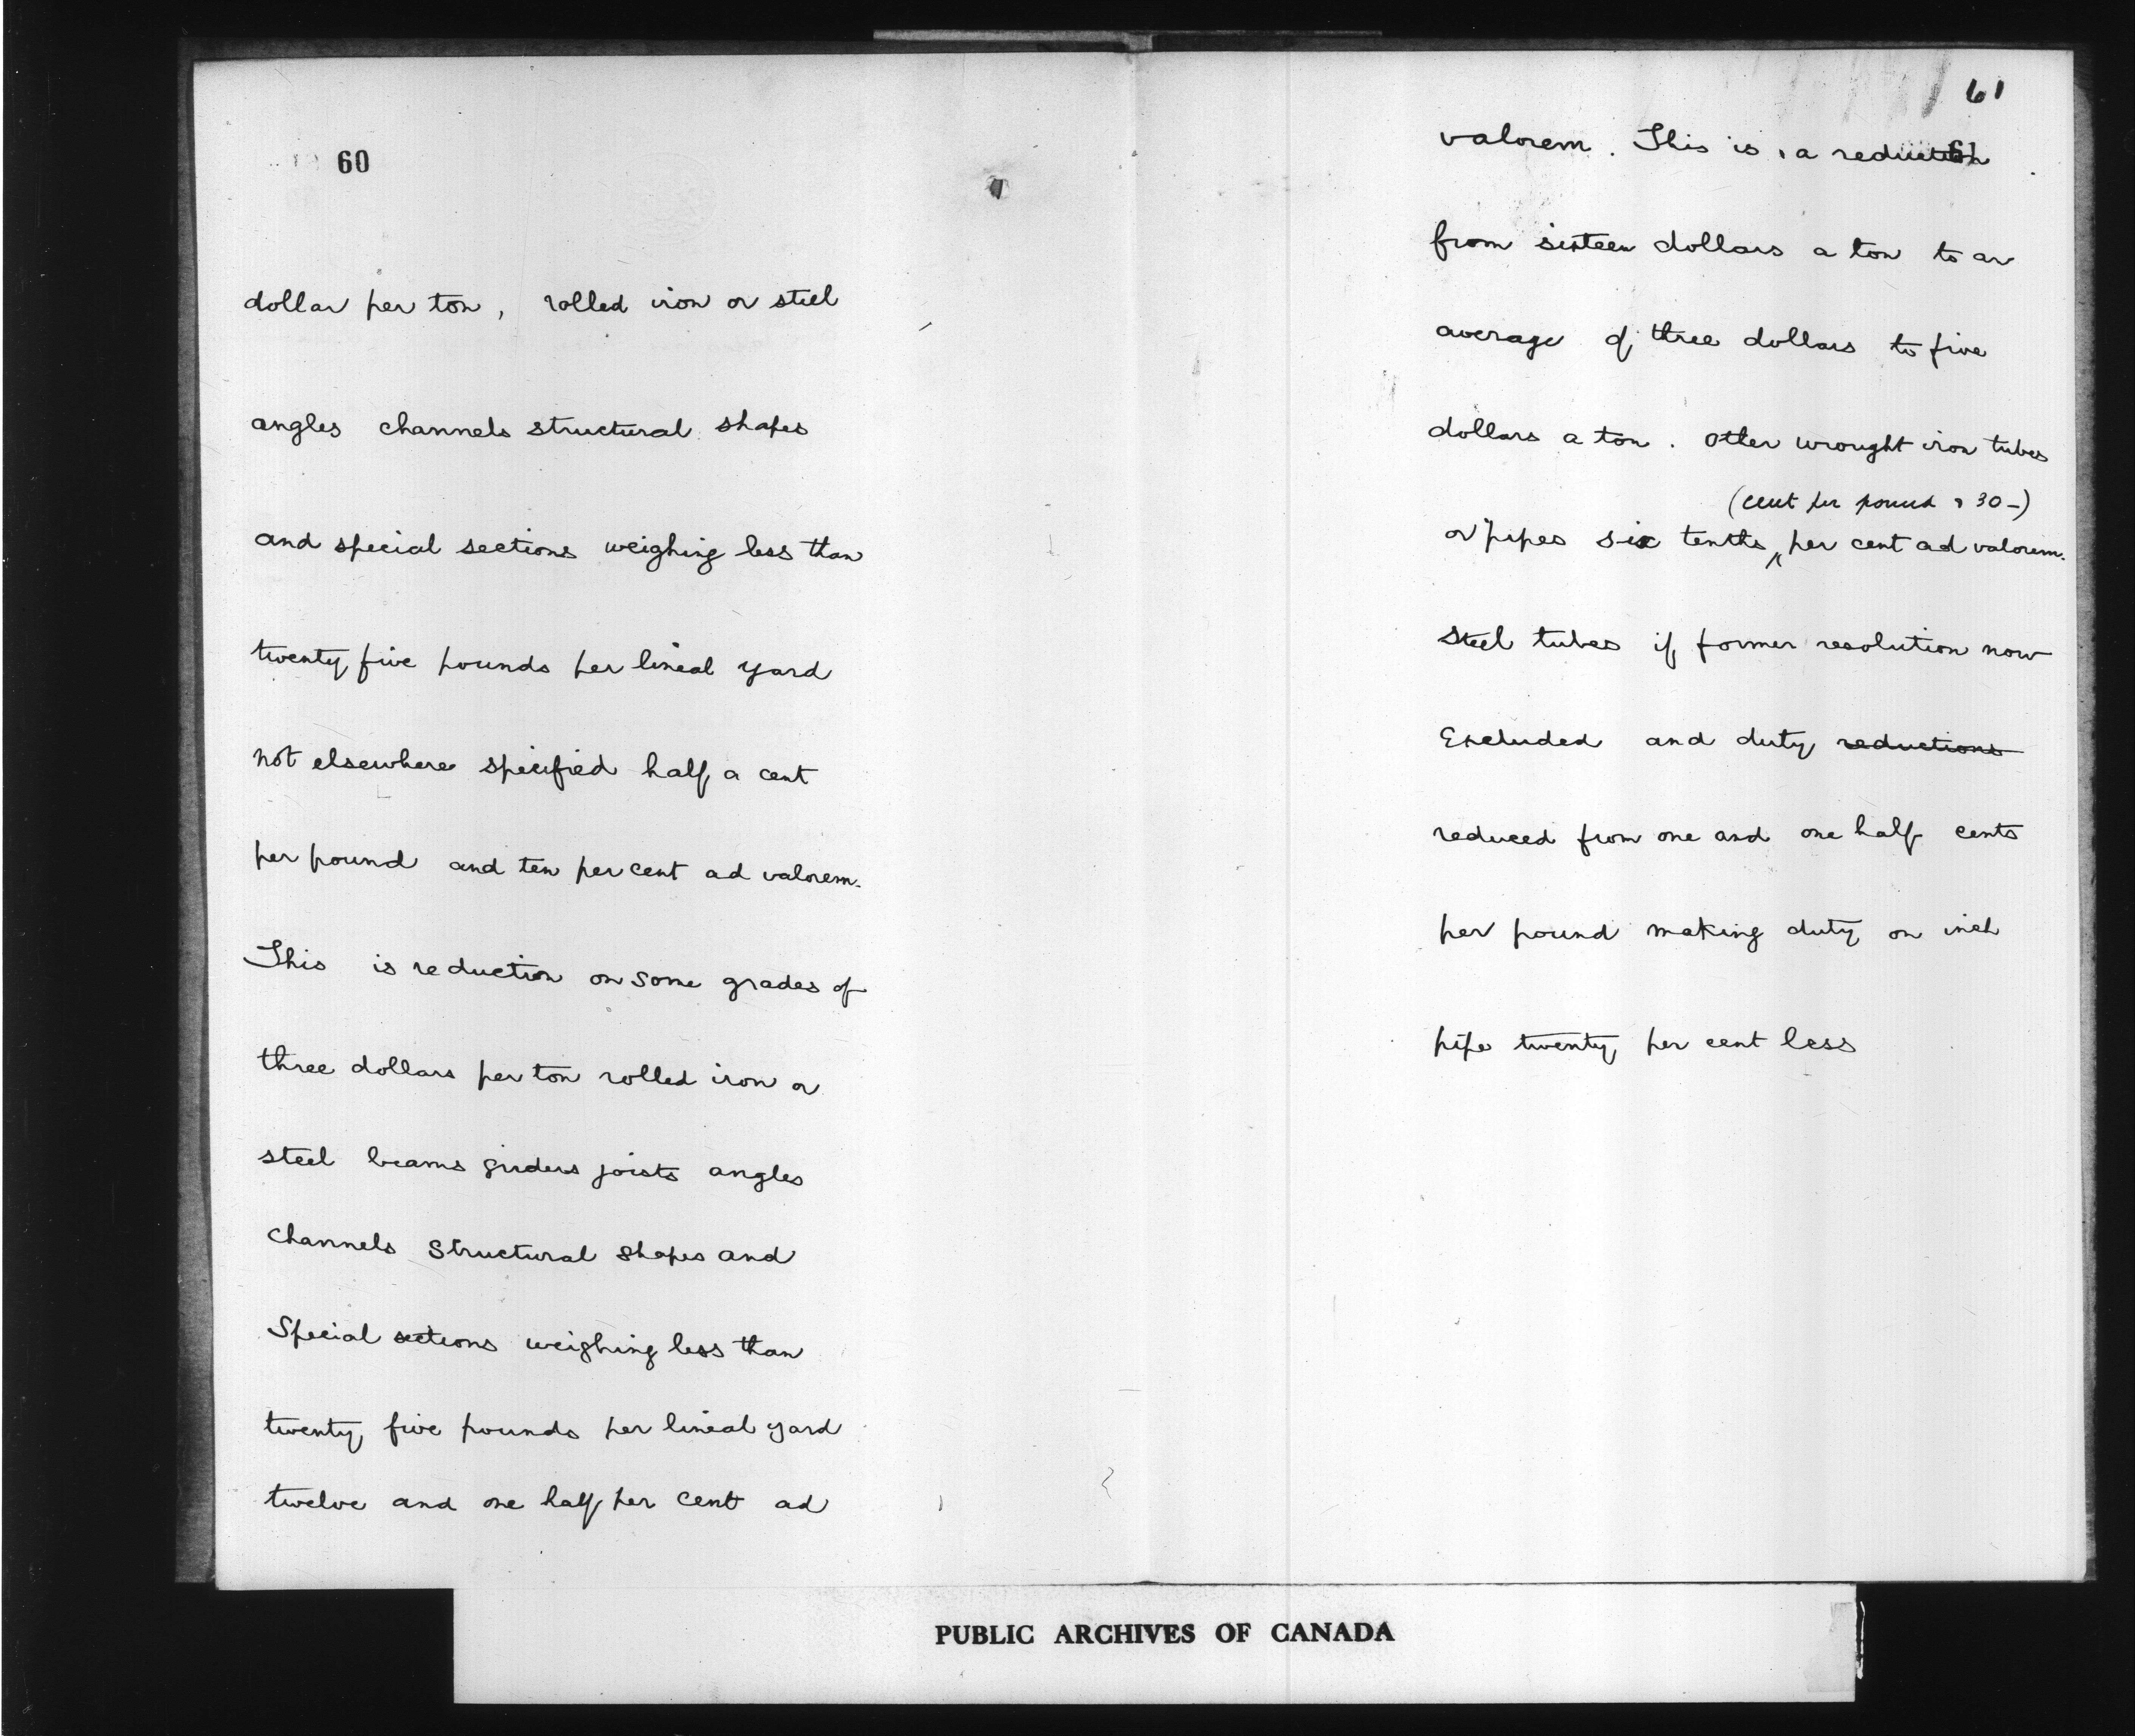 60
dollar per ton, rolled iron or steel
angles channels structural shapes
and special sections weighing less than
twenty five pounds per lineal yard
not elsewhere specified half a cent
per pound and ten per cent ad valorem.
This is reduction on some grades of
three dollars per ton rolled iron or
steel beams girders joists angles
channels structural shapes and
special sections weighing less than
twenty five pounds per lineal yard
twelve and one half per cent ad
61
valorem. This is a reduction
61
from sixteen dollars a ton to an
average of three dollars to five
dollars a ton. Other wrought iron tubes
(cent per pound & 30-)
or pipes six tenths per cent ad valorem.
steel tubes if former resolution now
Excluded and duty reductions
reduced from one and one half cents
per pound making duty on inch
pipe twenty per cent less
PUBLIC ARCHIVES OF CANADA